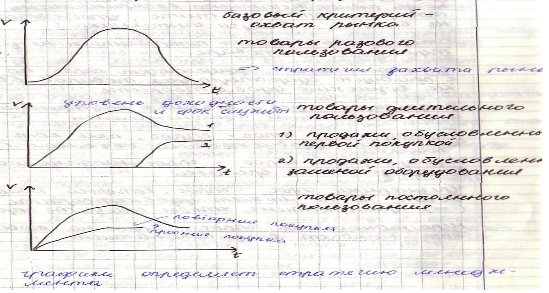 базовый критерий -
охват рынка
товары разового
пользования
V
t
=> стратегия захвата рынк
уровень доходности
и срок службы
товары длительного
пользования
V
1
2
t
1) продажи, обусловленн
первой покупкой
2) продажи, обусловлен
заменой оборудования
V
t
повторные покупки
пробные покупка
товары постоянного
пользования
графики определяет стратегию менедж-
мента